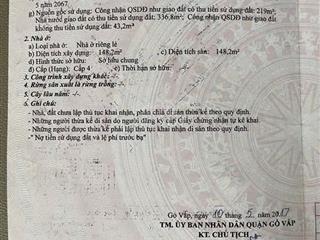 5 năm 2067
g) Nguồn gốc sử dụng: Công nhận QSDĐ như giao đất có thu tiền sử dụng đất: 219m²;
Nhà nước giao đất có thu tiền sử dụng đất: 336,8m²; Công nhận QSDĐ như giao đất
không thu tiền sử dụng đất: 43,2m²
2. Nhà ở:
a) Loại nhà ở: Nhà ở riêng lẻ
b) Diện tích xây dựng: 148,2m² c) Diện tích sàn: 148,2m²
d) Hình thức sở hữu: Sở hữu chung
đ) Cấp (Hạng): Cấp 4 e) Thời hạn sở hữu: -/-
3. Công trình xây dựng khác: -/-
4. Rừng sản xuất là rừng trồng: -/-
5. Cây lâu năm: -/-
6. Ghi chú:
- Nhà, đất chưa lập thủ tục khai nhận, phân chia di sản thừa kế theo quy định.
- Những người thừa kế di sản do người đăng ký cấp Giấy chứng nhận tự kê khai.
- Những người được thừa kế phải lập thủ tục khai nhận di sản theo quy định.
- "Nợ tiền sử dụng đất và lệ phí trước bạ"
Gò Vấp, ngày 10 tháng 5
TM. ỦY BAN NHÂN DÂN QUẬN GÒ VẤP
KT. CHỦ TỊCH